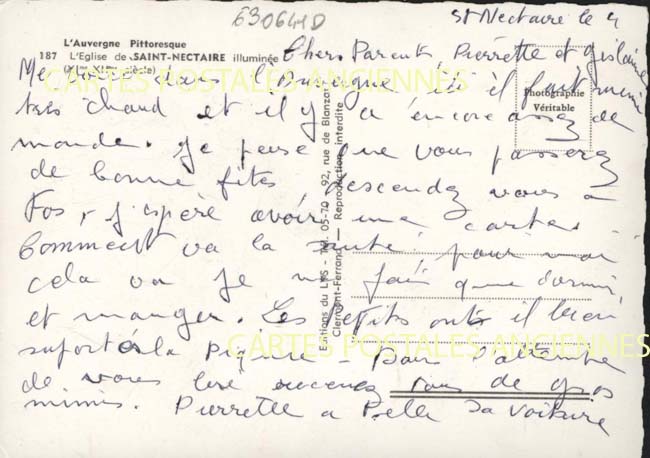 630641D
St Nectaire le 4
L'Auvergne Pittoresque
187 L'Eglise de SAINT-NECTAIRE illuminée
(XIme-XIIme siècle)
Chers Parents Pierrette et Gislaine
Me voici dans l'Auvergne ici il fait
très chaud et il y a encore assez de
monde. Je pense que vous passerez
de bonne fêtes descendez vous à
Fos, j'espère avoir une carte.
Comment va la santé pour moi
cela va je ne fais que dormir
et manger. Les petits ont il bien
suporté la piqure - Dans l'attente
de vous lire recevez tous de gros
mimis. Pierrette a Belle sa voiture
Photographie
Véritable
Editions du LYS - Tél. 05-70 92, rue de Blanzat
Clermont-Ferrand — Reproduction Interdite
CARTES POSTALES ANCIENNES
CARTES POSTALES ANCIENNES